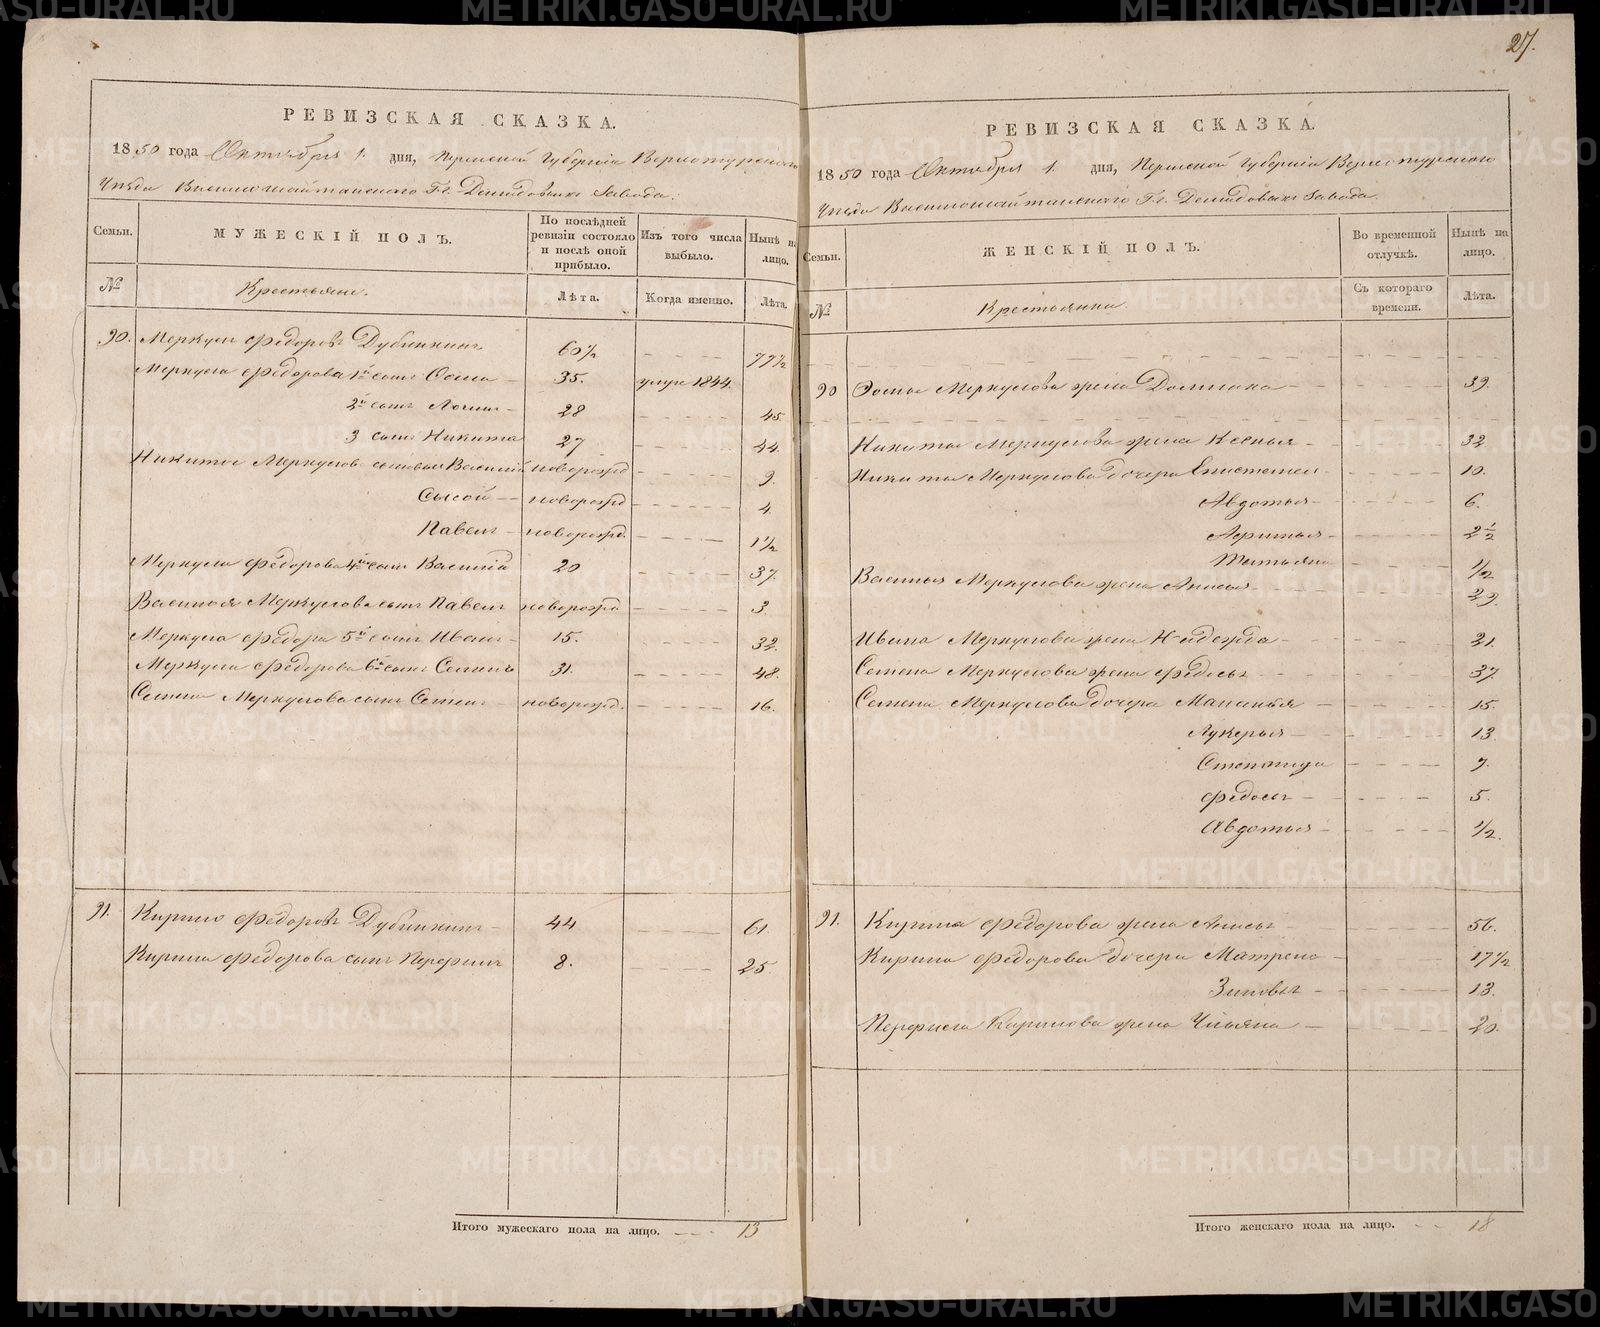 27.
РЕВИЗСКАЯ СКАЗКА.
1850 года Октября 1. дня, Пермской Губернiи Верхотурскаго
Уѣзда Висимошайтанскаго Гг. Демидовыхъ Завода.
Семьи. МУЖЕСКIЙ ПОЛЪ. По послѣдней ревизiи состояло и послѣ оной прибыло. Изъ того числа выбыло. Нынѣ на лицо.
№ Крестьяне. Лѣта. Когда именно. Лѣта.
90. Меркулъ Федоровъ Дубининъ 60½ 77½
Меркула Федорова 1й сынъ 35. умре 1844.
2й сынъ Логинъ 28 45
3 сынъ Никита 27 44.
Никиты Меркулов. сыновья Василiй новорожд 9.
Сысой новорожд 4
Павелъ новорожд. 1½
Меркула Федорова 4й сынъ Василiй 20 37.
Василья Меркулова сынъ Павелъ новорожд 3.
Меркула Федора 5й сынъ Иванъ 15. 32.
Меркула Федорова 6й сынъ Семенъ 31. 48.
Семена Меркулова сынъ новорожд. 16.
91. Кирило Федоровъ Дубининъ 44 61.
Кирила Федорова сынъ Перфилъ 8. 25
Итого мужескаго пола на лицо. 13
РЕВИЗСКАЯ СКАЗКА.
1850 года Октября 1. дня, Пермской Губернiи Верхотурскаго
Уѣзда Висимошайтанскаго Гг. Демидовыхъ Завода.
Семьи. ЖЕНСКIЙ ПОЛЪ. Во временной отлучкѣ. Нынѣ на лицо.
№ Крестьянки. Съ котораго времени. Лѣта.
90 Меркулова жена 39.
Никиты Меркулова жена Ксенья 32
Никиты Меркулова дочери 10.
Авдотья 6.
2½
Татьяна ½
Василья Меркулова жена Анисья 29.
Ивана Меркулова жена Надежда 21.
Семена Меркулова жена Федосья 37.
Семена Меркулова дочери Маланья 15.
Лукерья 13
Степанида 7.
Федосья 5.
Авдотья ½.
91. Кирила Федорова жена Анисья 56.
Кирила Федорова дочери Матрена 17½
Зиновья 13.
Перфила Кирилова жена Ульяна 20.
Итого женскаго пола на лицо. 18
METRIKI.GASO-URAL.RU